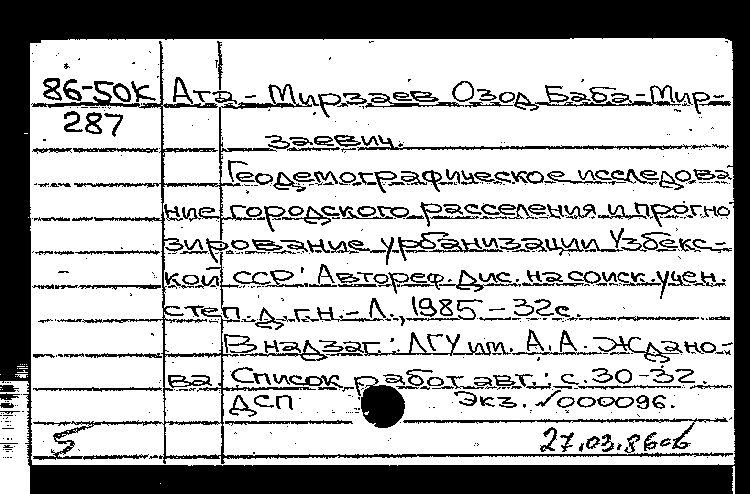 86-50К Ата-Мирзаев Озод Баба-Мир-
287
заевич.
Геодемографическое исследова
ние городского расселения и прогно
зирование урбанизации Узбекс-
кой ССР: Автореф. дис. на соиск. учен.
степ. д. г.н. - Л., 1985 - 32с.
В надзаг.: ЛГУ им. А.А. Ждано-
ва. Список работ авт.: с. 30-32.
ДСП Экз. √000096.
5 27.03.86